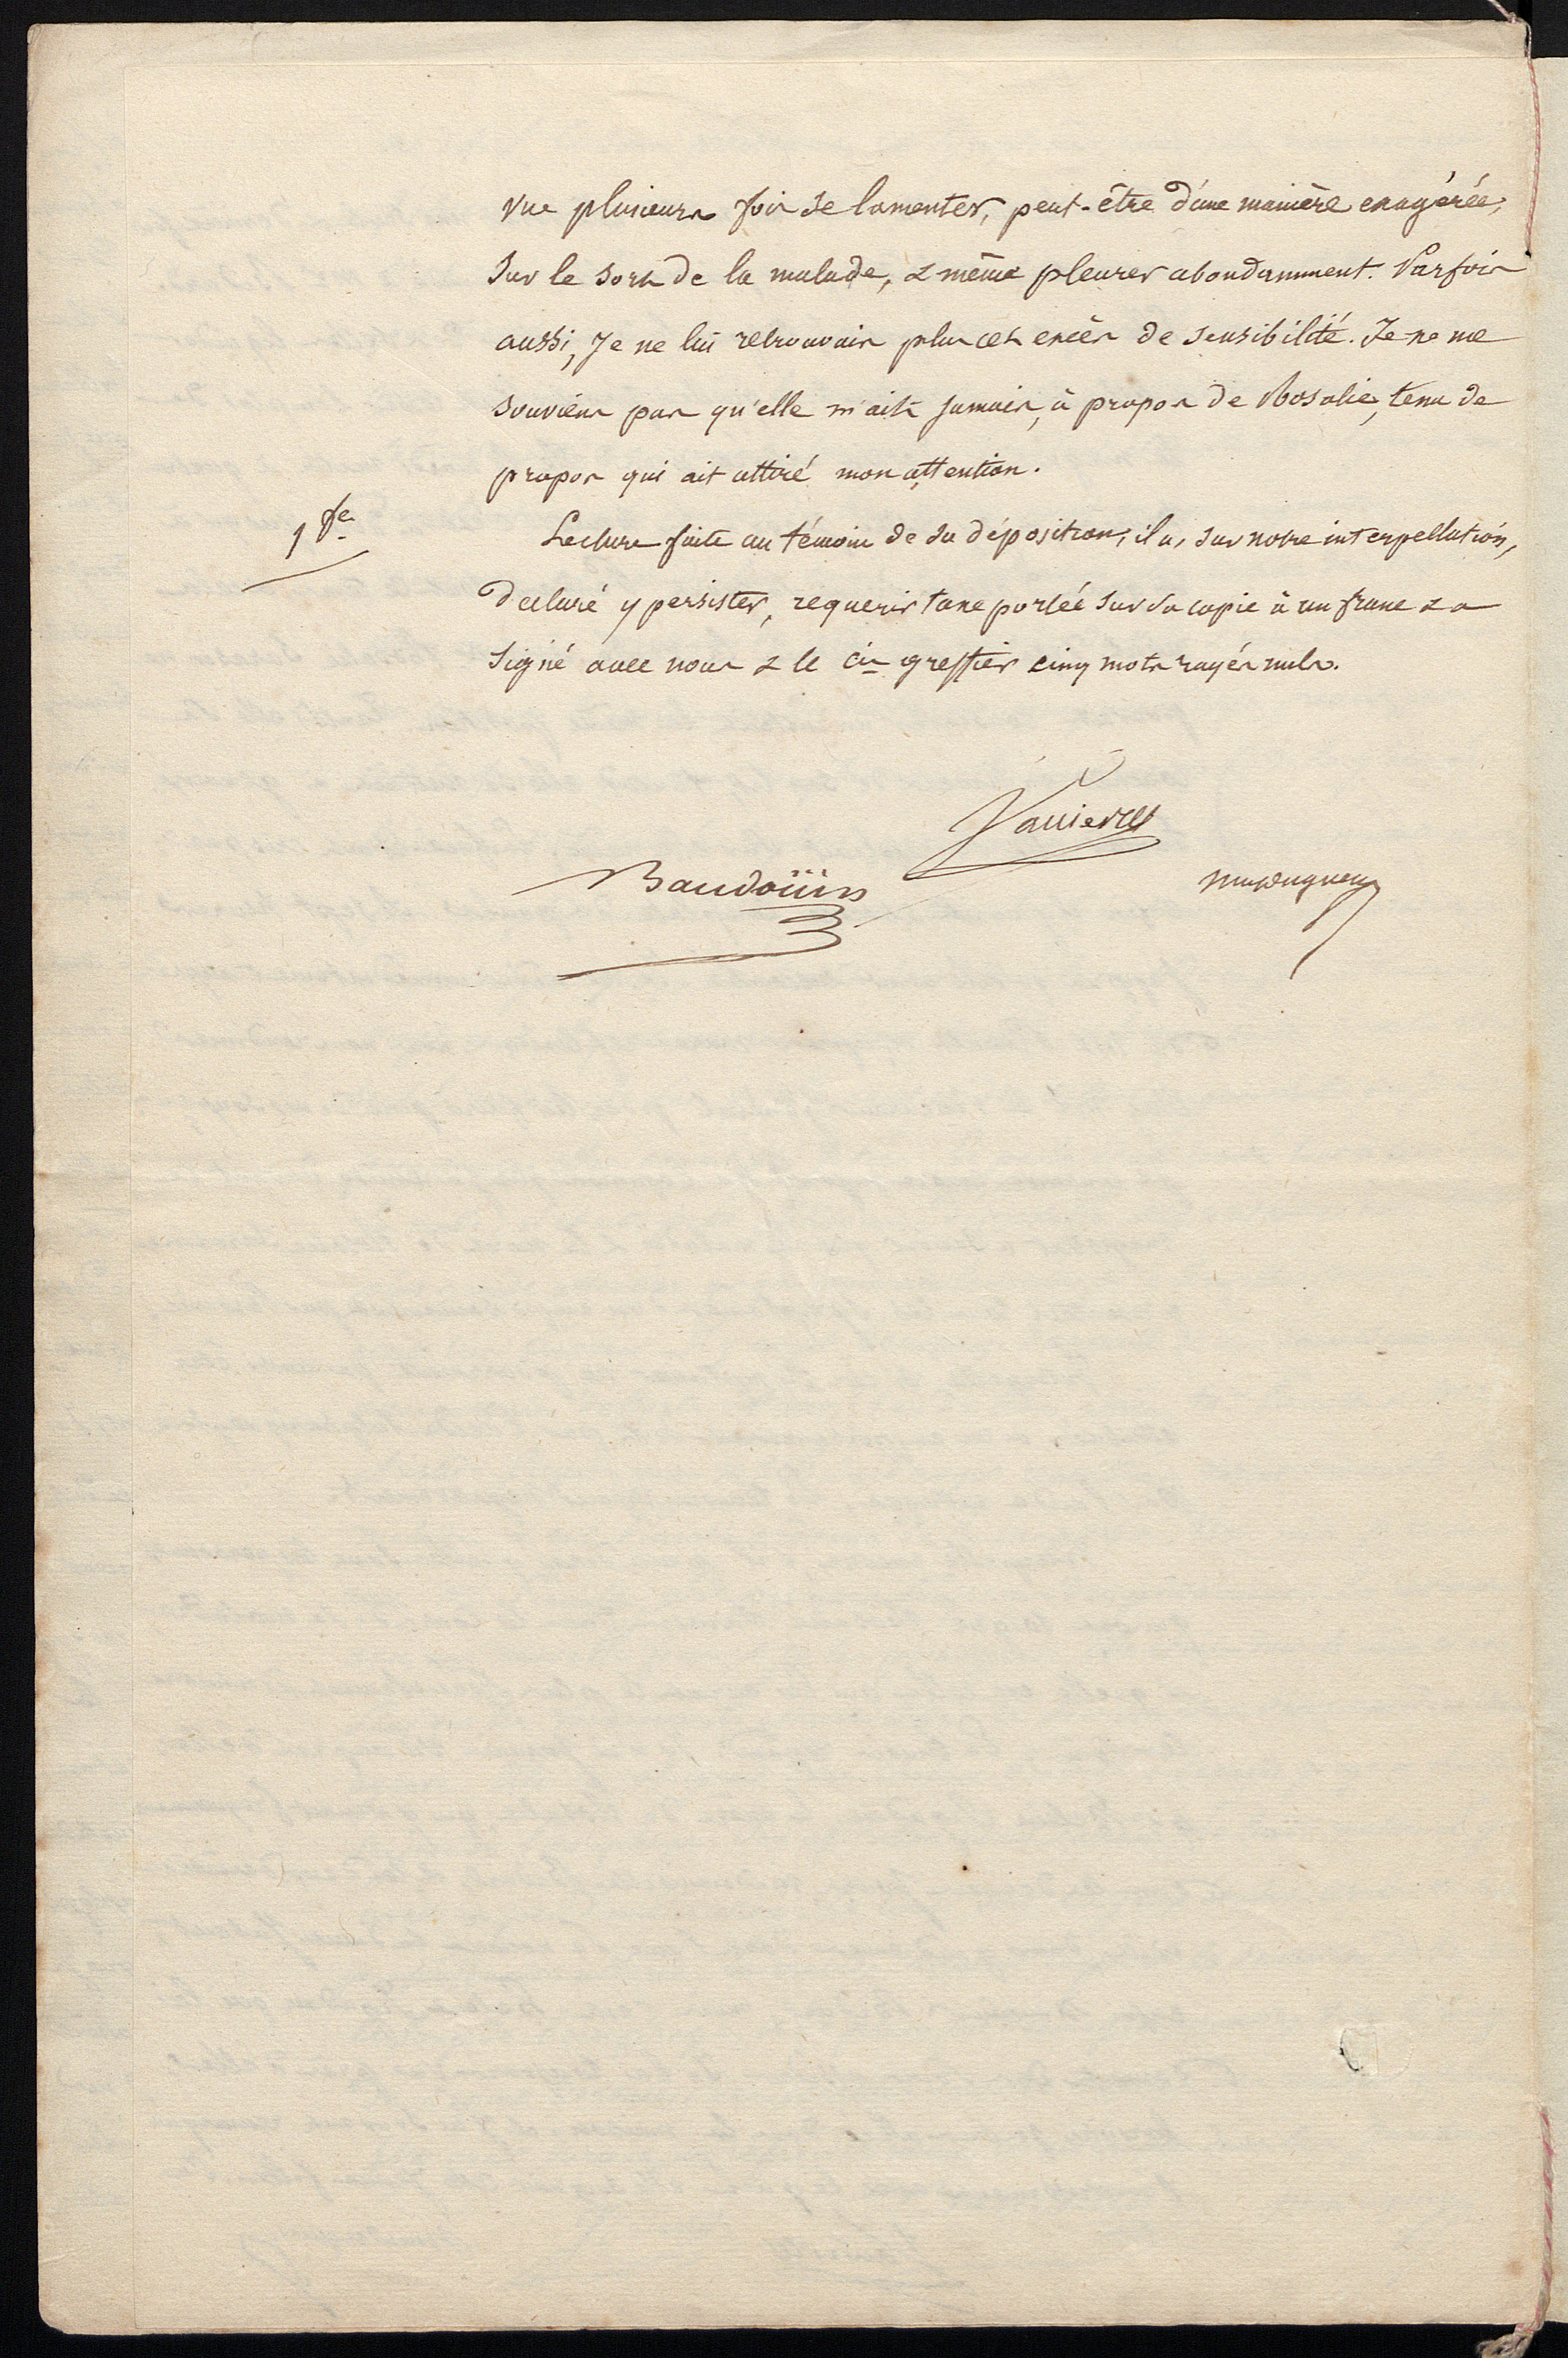 vue plusieurs fois se lamenter, peut-être d'une manière exagérée,
sur le sort de la malade, & même pleurer abondamment. Parfois
aussi, Je ne lui retrouvais plus cet excès de sensibilité. Je ne me
souviens pas qu'elle m'ait jamais, à propos de Rosalie, tenu de
propos qui ait attiré mon attention.
1 fc
Lecture faite au témoin de sa déposition, il a, sur notre interpellation,
déclaré y persister, requérir taxe portée sur sa copie à un franc & a
signé avec nous & le cis greffier cinq mots rayés nuls.
Vannier
Baudoüin